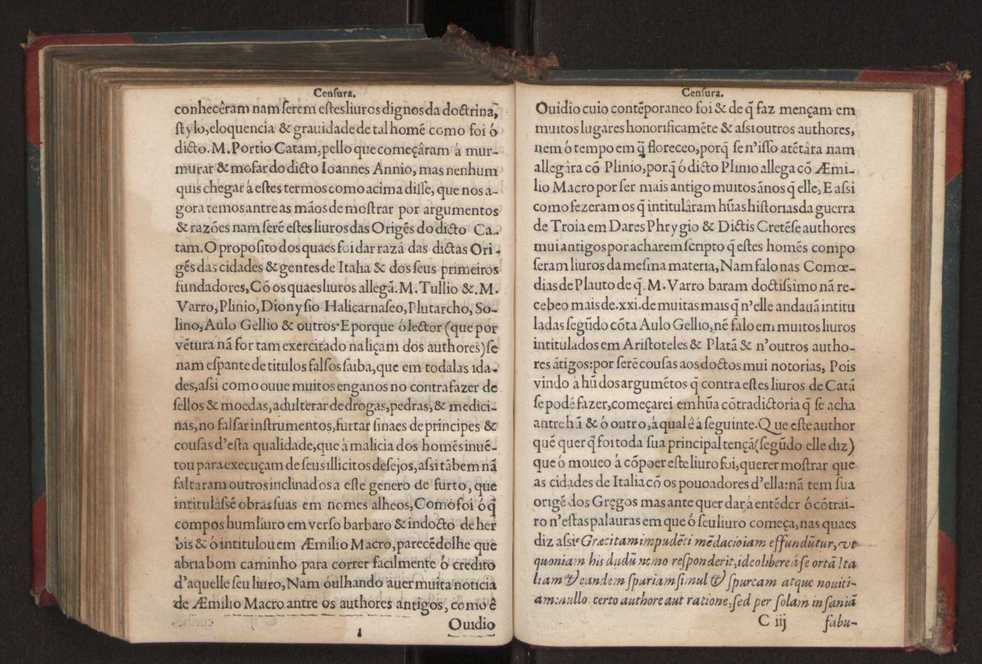 Censura.
conhecêram nam serem estes liuros dignos da doctrina,
stylo, eloquencia & grauidade de tal homẽ como foi ó
dicto. M. Portio Catam, pello que começâram á mur-
murar & mofar do dicto Ioannes Annio, mas nenhum
quis chegar á estes termos como acima disse, que nos a-
gora temos antre as mãos de mostrar por argumentos
& razões nam serẽ estes liuros das Origẽs do dicto Ca-
tam. O proposito dos quaes foi dar razã das dictas Ori-
gẽs das cidades & gentes de Italia & dos seus primeiros
fundadores, Cõ os quaes liuros allegã. M. Tullio &. M.
Varro, Plinio, Dionysio Halicarnaseo, Plutarcho, So-
lino, Aulo Gellio & outros· Eporque ó lector (que por
vẽtura nã for tam exercitado na liçam dos authores) se
nam espante de titulos falsos saiba, que em todalas ida-
des, assi como ouue muitos enganos no contrafazer de
sellos & moedas, adulterar de drogas, pedras, & medici-
nas, no falsar instrumentos, furtar sinaes de principes &
cousas d'esta qualidade, que á malicia dos homẽs inuẽ-
tou para execuçam de seus illicitos desejos, assi tãbem nã
faltaram outros inclinados a este genero de furto, que
intitulassẽ obras suas em nomes alheos, Como foi ó q̃
compos hum liuro em verso barbaro & indocto de her
bis & ó intitulou em Æmilio Macro, parecẽdolhe que
abria bom caminho para correr facilmente ó credito
d'aquelle seu liuro, Nam oulhando auer muita noticia
de Æmilio Macro antre os authores antigos, como ẽ
Ouidio
Censura.
Ouidio cuio contẽporaneo foi & de q̃ faz mençam em
muitos lugares honorificamẽte & assi outros authores,
nem ó tempo em q̃ floreceo, porq̃ se n'isso atẽtâra nam
allegâra cõ Plinio, por.q̃ ó dicto Plinio allega cõ Æmi-
lio Macro por ser mais antigo muitos ânos q̃ elle, E assi
como sezeram os q̃ intitulâram hũas historias da guerra
de Troia em Dares Phrygio & Dictis Cretẽse authores
mui antigos por acharem scripto q̃ estes homẽs compo
seram liuros da mesma materia, Nam falo nas Comœ-
dias de Plauto de q̃. M. Varro baram doctissimo nã re-
cebeo mais de. xxi. de muitas mais q̃ n'elle andauã intitu
ladas segũdo cõta Aulo Gellio, nẽ falo em muitos liuros
intitulados em Aristoteles & Platã & n'outros autho-
res ãtigos: por serẽ cousas aos doctos mui notorias, Pois
vindo á hũ dos argumẽtos q̃ contra estes liuros de Catã
se podẽ fazer, começarei em hũa cõtradictoria q̃ se acha
antre hũ & ó outro, á qual é á seguinte. Que este author
quẽ quer q̃ foi toda sua principal tençã (segũdo elle diz)
que ó moueo á cõpoer este liuro foi, querer mostrar que
as cidades de Italia cõ os pouoadores d'ella: nã tem sua
origẽ dos Gregos mas ante quer dar á entẽder ó cõtrai-
ro n'estas palauras em que ó seu liuro começa, nas quaes
diz assi· Græci tam impudẽti mẽdacio iam effundũtur, vt
quoniam his dudũ nemo responderit, ideo libere á se ortã Ita
liam & eandem spariam simul & spurcam atque nouiti-
am: nullo certo authore aut ratione, sed per solam insaniã
C iij
fabu-